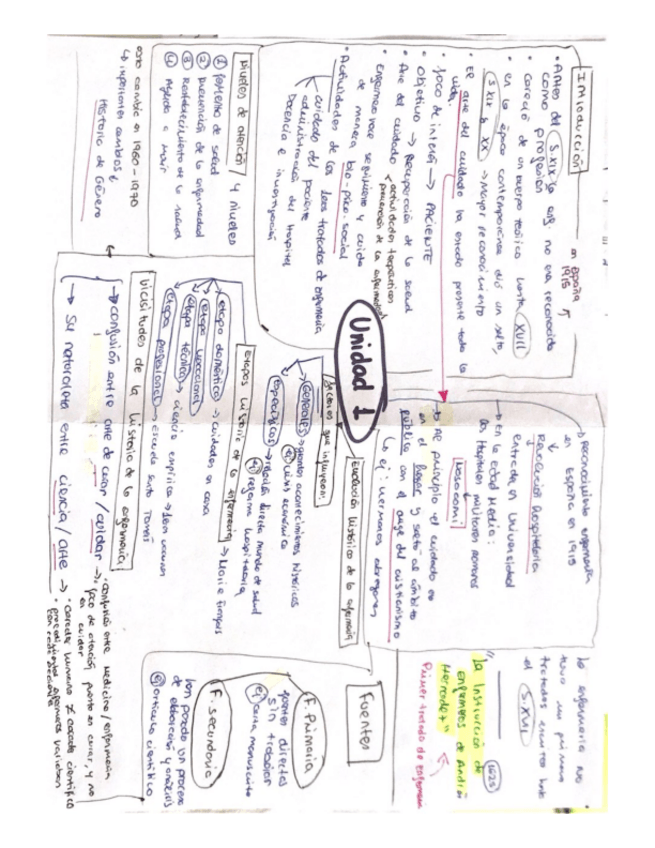 Unidad 1
Introducción
• Antes del S.XIX la enf. no era reconocida
como profesión
en españa
1915
• careció de un cuerpo teórico hasta XVII
• en la época contemporánea dió un salto,
S.XIX y XX → mayor reconocimiento
• El arte del cuidado ha estado presente toda la
vida.
• foco de interés → PACIENTE
• Objetivo → Recuperación de la salud
• Arte del cuidado
actividades terapéuticas
prevención de la enfermedad
de manera bio-psico-social
• Actividades de los tratados de enfermería
cuidado del paciente
administración del Hospital
Docencia e investigación
Niveles de atención / 4 niveles
① fomento de salud
② Prevención de la enfermedad
③ Restablecimiento de la salud
④ Ayuda a morir
1960-1970
importantes cambios
Historia de Género
Evolución histórica de la enfermería
→ Reconocimiento enfermería
en España en 1915
Revolución Hospitalaria
entrada en Universidad
→ En la edad Media:
los Hospitales militares romanos
Nosocomi
→ Al principio el cuidado era
en el hogar y salto al ámbito
público con el auge del cristianismo
ej: hermanos obregones
Factores que influyeron:
Generales → grandes acontecimientos históricos
ej crisis económica
específicos → relación directa mundo de salud
ej reforma hospitalaria
Etapas historia de la enfermería
etapa doméstica → cuidados en casa
etapa vocacional
etapa técnica → ciencia empírica
etapa profesional → escuela santo Tomás
Vicisitudes de la historia de la enfermería
→ confusión entre arte de curar / cuidar →
• confusión entre medicina / enfermería
• foco de atención puesto en curar, y no
en cuidar
→ su naturaleza entre ciencia / arte →
• carácter humano ≠ carácter científico
• procedimientos enfermeros variaban
La enfermería no
tuvo un primer
tratado escrito hasta
el S.XVII
"La Instrucción de
enfermeros de Andrés
1625
Primer tratado de enfermería
Fuentes
F. Primaria
fuentes directas
sin trabajar
ej carta manuscrita
F. secundaria
han pasado un proceso
de elaboración y análisis
ej artículo científico